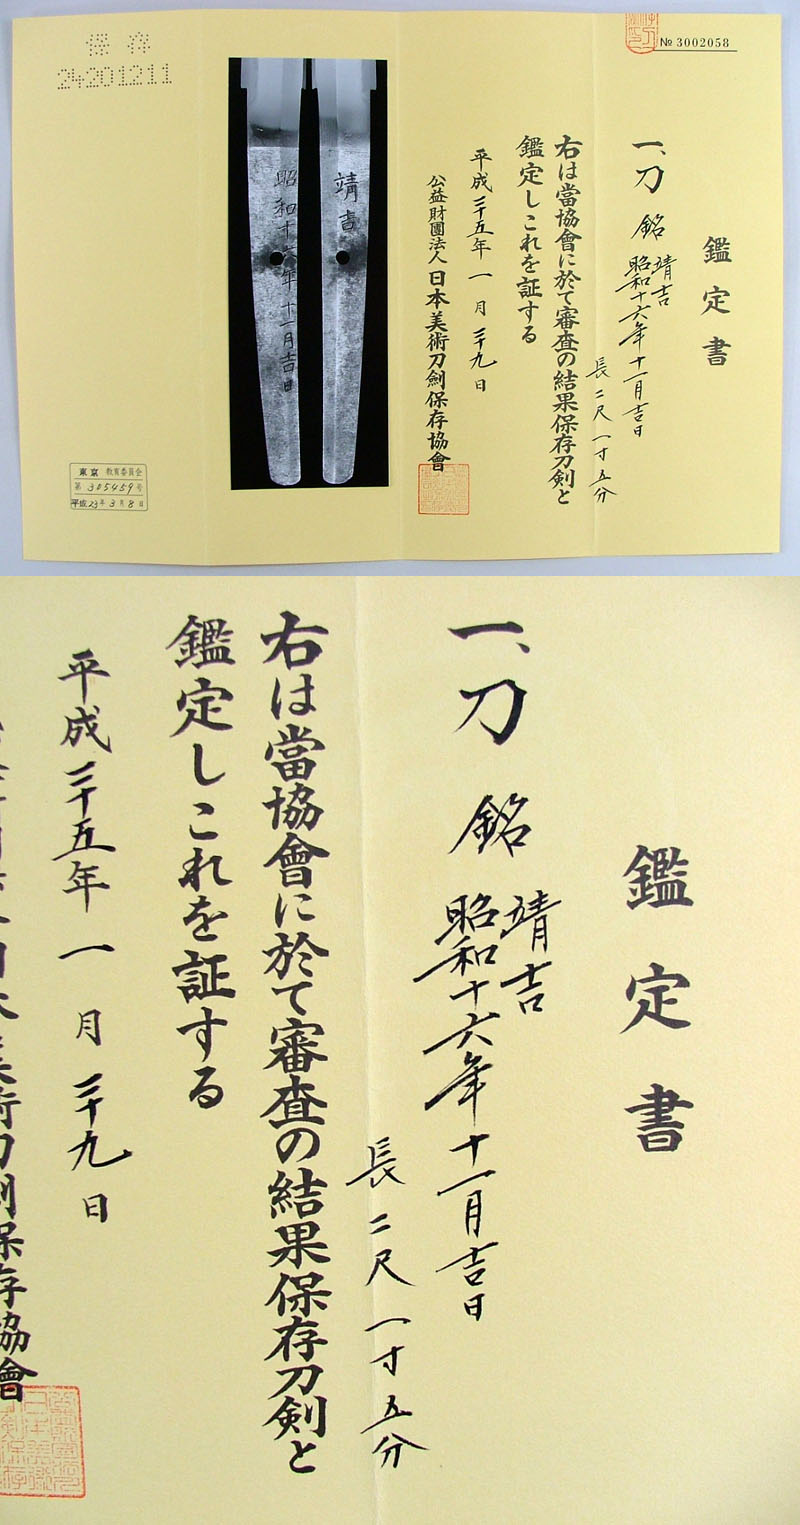 保存
24201211
№ 3002058
鑑定書
一、刀 銘 靖吉
昭和十六年十一月吉日
長二尺一寸五分
右は當協會に於て審査の結果保存刀剣と
鑑定しこれを証する
平成二十五年一月二十九日
公益財團法人日本美術刀剣保存協會
靖吉
昭和十六年十一月吉日
東京 教育委員会
第 305459 号
平成23年3月8日
鑑定書
一、刀 銘 靖吉
昭和十六年十一月吉日
長二尺一寸五分
右は當協會に於て審査の結果保存刀剣と
鑑定しこれを証する
平成二十五年一月二十九日
日本美術刀剣保存協會